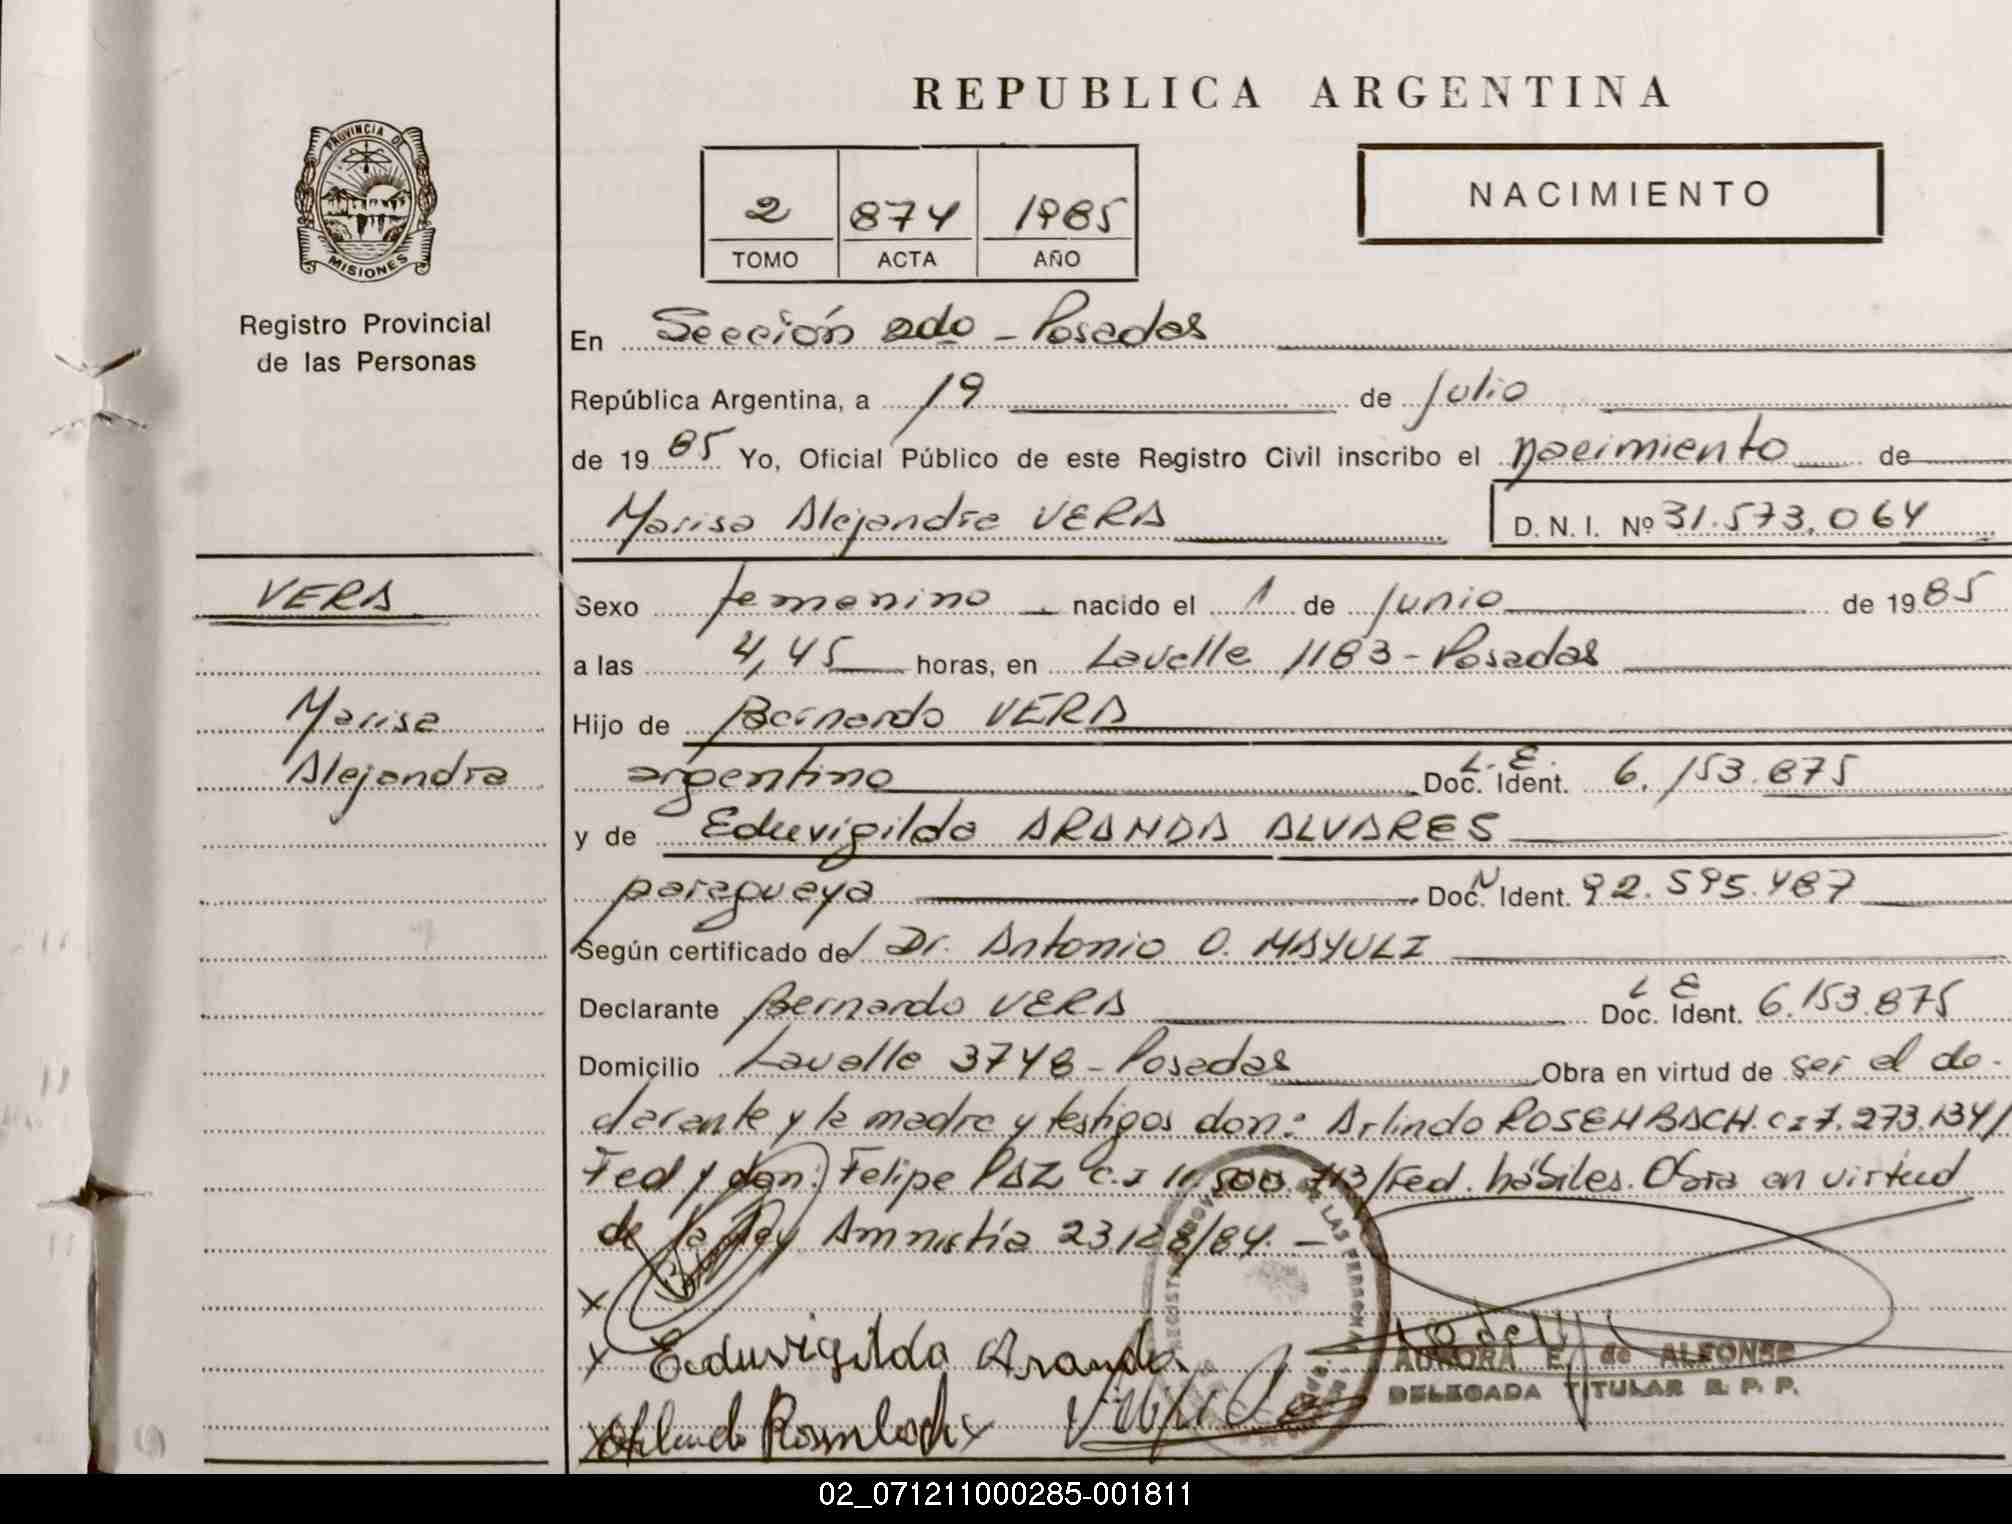 REPUBLICA ARGENTINA
PROVINCIA DE
MISIONES
Registro Provincial
de las Personas
2 874 1985
TOMO ACTA AÑO
NACIMIENTO
En Sección 2do - Posadas
República Argentina, a 19 de julio
de 1985 Yo, Oficial Público de este Registro Civil inscribo el nacimiento de
Marisa Alejandra VERA D. N. I. Nº 31.573.064
VERA
Marisa
Alejandra
Sexo femenino nacido el 1 de junio de 1985
a las 4,45 horas, en Lavalle 1183 - Posadas
Hijo de Bernardo VERA
argentino L. E. Doc. Ident. 6.153.875
y de Eduvigilda ARANDA ALVARES
paraguaya Doc. N Ident. 92.595.487
Según certificado del Dr. Antonio O. MAYULI
Declarante Bernardo VERA L E Doc. Ident. 6.153.875
Domicilio Lavalle 3748 - Posadas Obra en virtud de ser el de-
clarante y la madre y testigos don: Arlindo ROSEMBACH. CI 7.273.134/
Fed y don: Felipe PAZ C.I 11.500.713/Fed. hábiles. Obra en virtud
de la ley Amnistía 23128/84. -
x
x Eduvigilda Aranda
AURORA E. de ALFONSO
DELEGADA TITULAR R. P. P.
x Arlindo Rosembach x
02_071211000285-001811